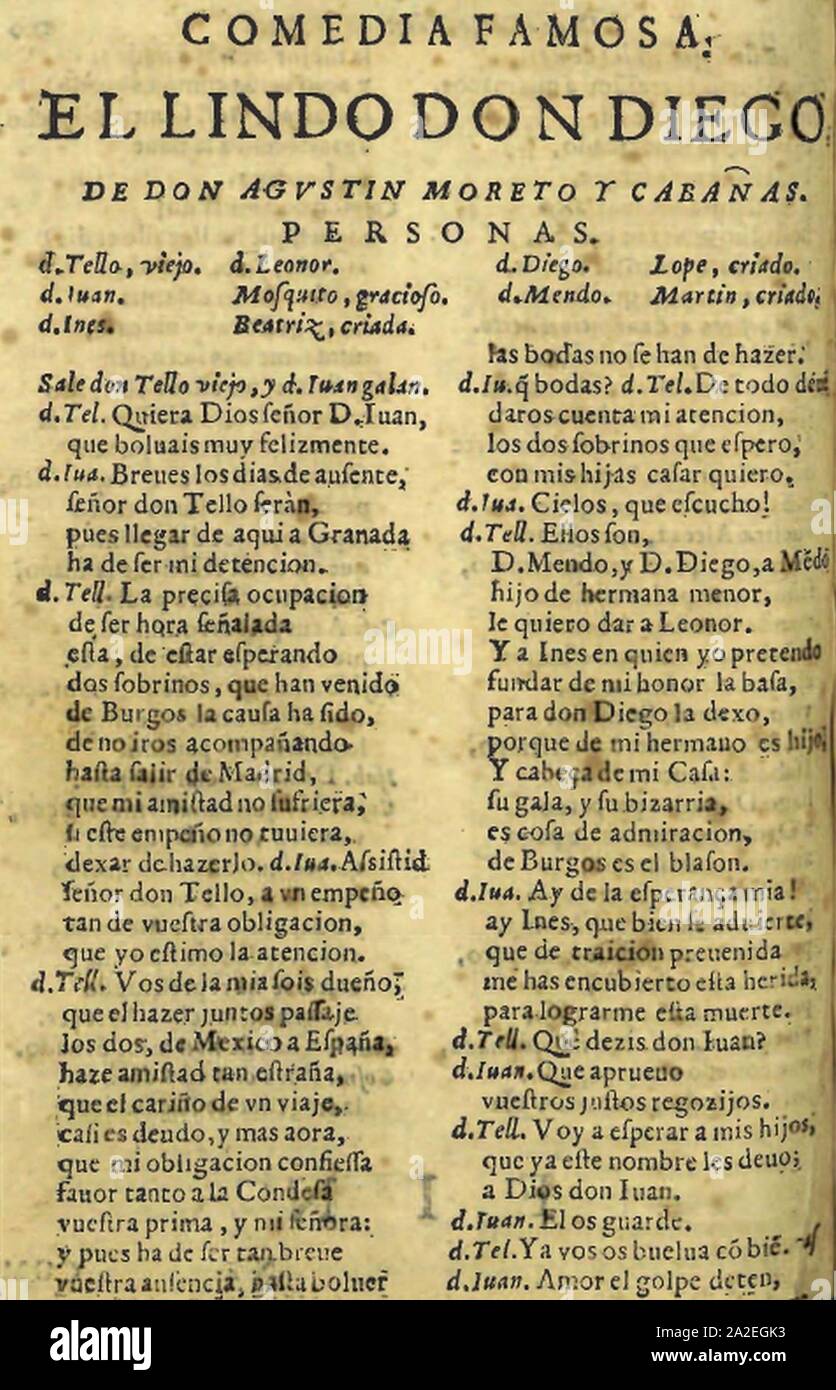 COMEDIA FAMOSA.
EL LINDO DON DIEGO.
DE DON AGVSTIN MORETO Y CABAÑAS.
PERSONAS.
d.Tello, viejo. d.Leonor. d.Diego. Lope, criado.
d.Iuan. Moſquito, gracioſo. d.Mendo. Martin, criado.
d.Ines. Beatriz, criada.
Sale don Tello viejo, y d. Iuan galan.
d.Tel. Quiera Dios ſeñor D.Iuan,
que boluais muy felizmente.
d.Iua. Breues los dias de auſente,
ſeñor don Tello ſeràn,
pues llegar de aqui a Granada
ha de ſer mi detencion.
d.Tell. La preciſa ocupacion
de ſer hora ſeñalada
eſta, de eſtar eſperando
dos ſobrinos, que han venido
de Burgos la cauſa ha ſido,
de no iros acompañando
haſta ſalir de Madrid,
que mi amiſtad no ſufriera,
ſi eſte empeño no tuuiera,
dexar de hazerlo. d.Iua. Aſsiſtid
ſeñor don Tello, a vn empeño
tan de vueſtra obligacion,
que yo eſtimo la atencion.
d.Tell. Vos de la mia ſois dueño,
que el hazer juntos paſſaje
los dos, de Mexico a Eſpaña,
haze amiſtad tan eſtraña,
que el cariño de vn viaje,
caſi es deudo, y mas aora,
que mi obligacion confieſſa
fauor tanto a la Condeſa
vueſtra prima, y mi ſeñora:
y pues ha de ſer tan breue
vueſtra auſencia, haſta boluer
las bodas no ſe han de hazer.
d.Iu. q̃ bodas? d.Tel. De todo
daros cuenta mi atencion,
los dos ſobrinos que eſpero,
con mis hijas caſar quiero.
d.Iua. Cielos, que eſcucho!
d.Tell. Ellos ſon,
D.Mendo, y D.Diego, a Mẽdo
hijo de hermana menor,
le quiero dar a Leonor.
Y a Ines en quien yo pretendo
fundar de mi honor la baſa,
para don Diego la dexo,
porque de mi hermano es hijo,
Y cabeça de mi Caſa:
ſu gala, y ſu bizarria,
es coſa de admiracion,
de Burgos es el blaſon.
d.Iua. Ay de la eſperança mia!
ay Ines, que bien ſe aduierte,
que de traicion preuenida
me has encubierto eſta herida,
para lograrme eſta muerte.
d.Tell. Què dezis don Iuan?
d.Iuan. Que aprueuo
vueſtros juſtos regozijos.
d.Tell. Voy a eſperar a mis hijos,
que ya eſte nombre les deuo;
a Dios don Iuan.
d.Iuan. El os guarde.
d.Tel. Ya vos os buelua cõ biẽ.
d.Iuan. Amor el golpe deten,
alamy
Image ID: 2A2EGK3
www.alamy.com